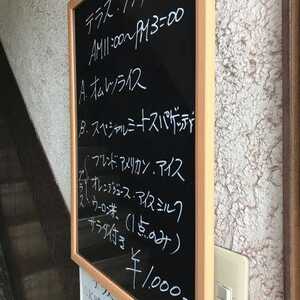 テラス・
AM11:00〜PM3:00
A. オムレツライス
B. スペシャルミートスパゲッティ
ブレンド・アメリカン・アイス
オレンジジュース・アイスミルク
ウーロン茶 (1点のみ)
サラダ付き
¥1,000-